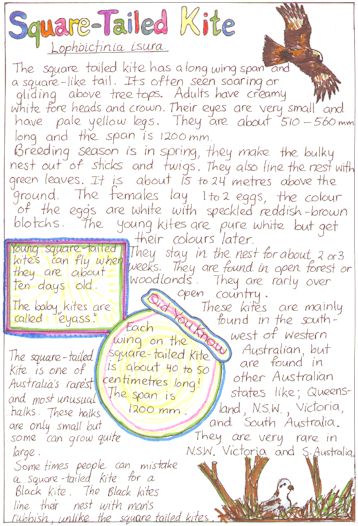 Square-Tailed Kite
Lophoictinia isura
The square tailed kite has a long wing span and
a square-like tail. It's often seen soaring or
gliding above tree tops. Adults have creamy
white fore heads and crown. Their eyes are very small and
have pale yellow legs. They are about 510-560mm
long and the span is 1200mm.
Breeding season is in spring, they make the bulky
nest out of sticks and twigs. They also line the nest with
green leaves. It is about 15 to 24 metres above the
ground. The females lay 1 to 2 eggs, the colour
of the eggs are white with speckled reddish-brown
blotchs. The young kites are pure white but get
their colours later.
They stay in the nest for about 2 or 3
weeks. They are found in open forest or
woodlands. They are rarly over
open country.
Young square-tailed
kites can fly when
they are about
ten days old.
The baby kites are
called "eyass."
Did You Know
Each
wing on the
square-tailed kite
is about 40 to 50
centimetres long!
The span is
1200mm.
These kites are mainly
found in the south-
west of Western
Australian, but
are found in
other Australian
states like; Queens-
land, N.S.W., Victoria,
and South Australia.
They are very rare in
N.S.W. Victoria and S.Australia.
The square-tailed
kite is one of
Australia's rarest
and most unusual
halks. These halks
are only small but
some can grow quite
large.
Some times people can mistake
a square-tailed kite for a
Black kite. The Black kites
line their nest with man's
rubbish, unlike the square tailed kites.